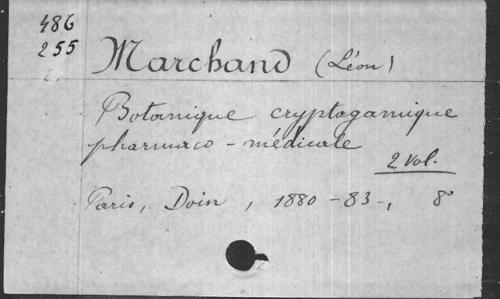 486
255
Marchand (Léon)
Botanique cryptogamique
pharmaco-médicale
2 Vol.
Paris, Doin, 1880-83-, 8°